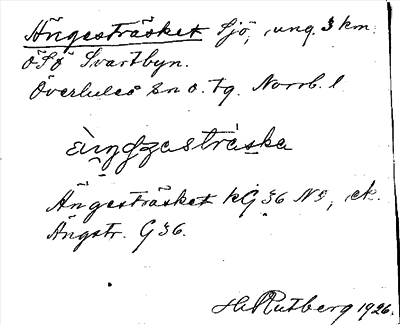 Ängesträsket Sjö, ung. 3 km.
ÖSÖ Svartbyn.
Överluleå sn o. tg. Norrb. l.
Ängesträsket kG 36 NÖ, ek.
Ängstr. G 36.
H. Rutberg 1926.